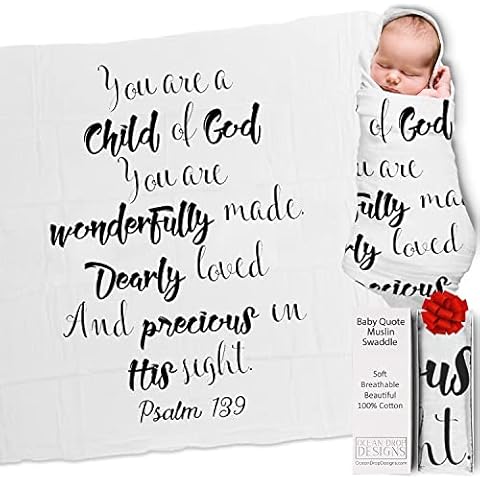 You are a
Child of God
You are
wonderfully made.
Dearly loved
And precious in
His sight.
Psalm 139
of God
are
lly made
loved
ecious
Baby Quote
Muslin
Swaddle
Soft
Breathable
Beautiful
100% Cotton
OCEAN DROP
DESIGNS
OceanDropDesigns.com
ous
ht.